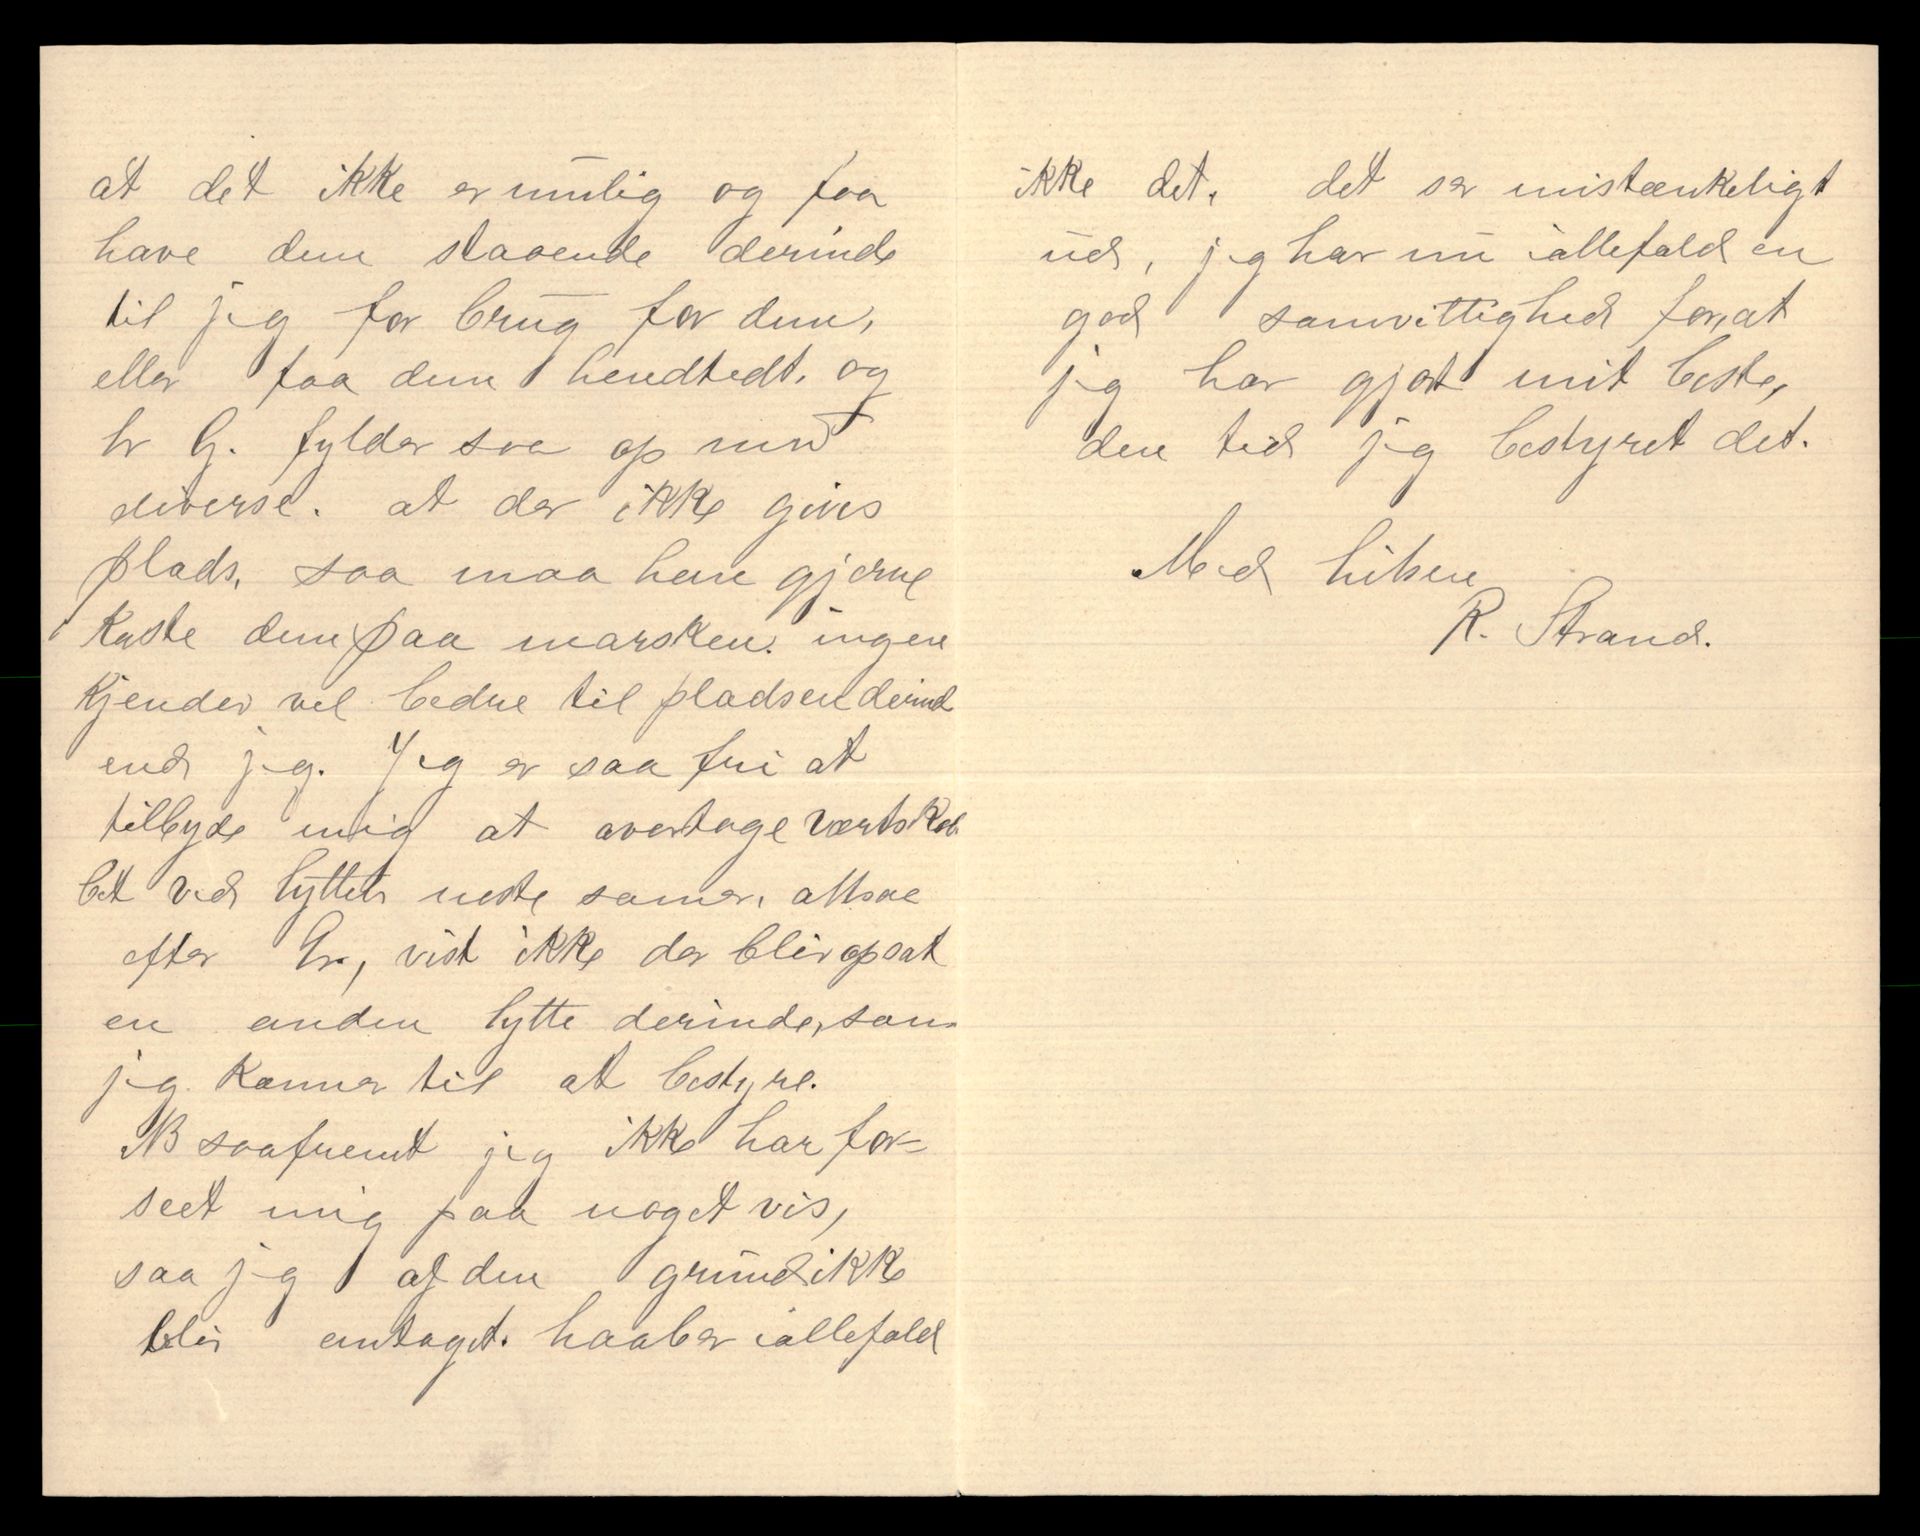 at det ikke er mulig og faa
have dem staaende derinde
til jeg for brug for dem,
eller faa dem hendtedt. og
hr G. fylder saa op med
diverse. at der ikke gives
plads, saa maa han gjerne
kaste dem paa marsken. ingen
kjender vel bedre til pladsen derind
end jeg. Jeg er saa fri at
tilbyde mig at overtage værtskab
bet ved hytten neste somer, altsaa
efter Gr., vist ikke der blir opsat
en anden hytte derinde, som
jeg kommer til at bestyre.
NB saafremt jeg ikke har for=
seet mig paa noget vis,
saa jeg af den grund ikke
blir antaget. haaber iallefald
ikke det. det ser mistænkeligt
ud, jeg har nu iallefald en
god samvittighed for, at
jeg har gjort mit beste,
den tid jeg bestyret det.
Med hilsen
R. Strand.